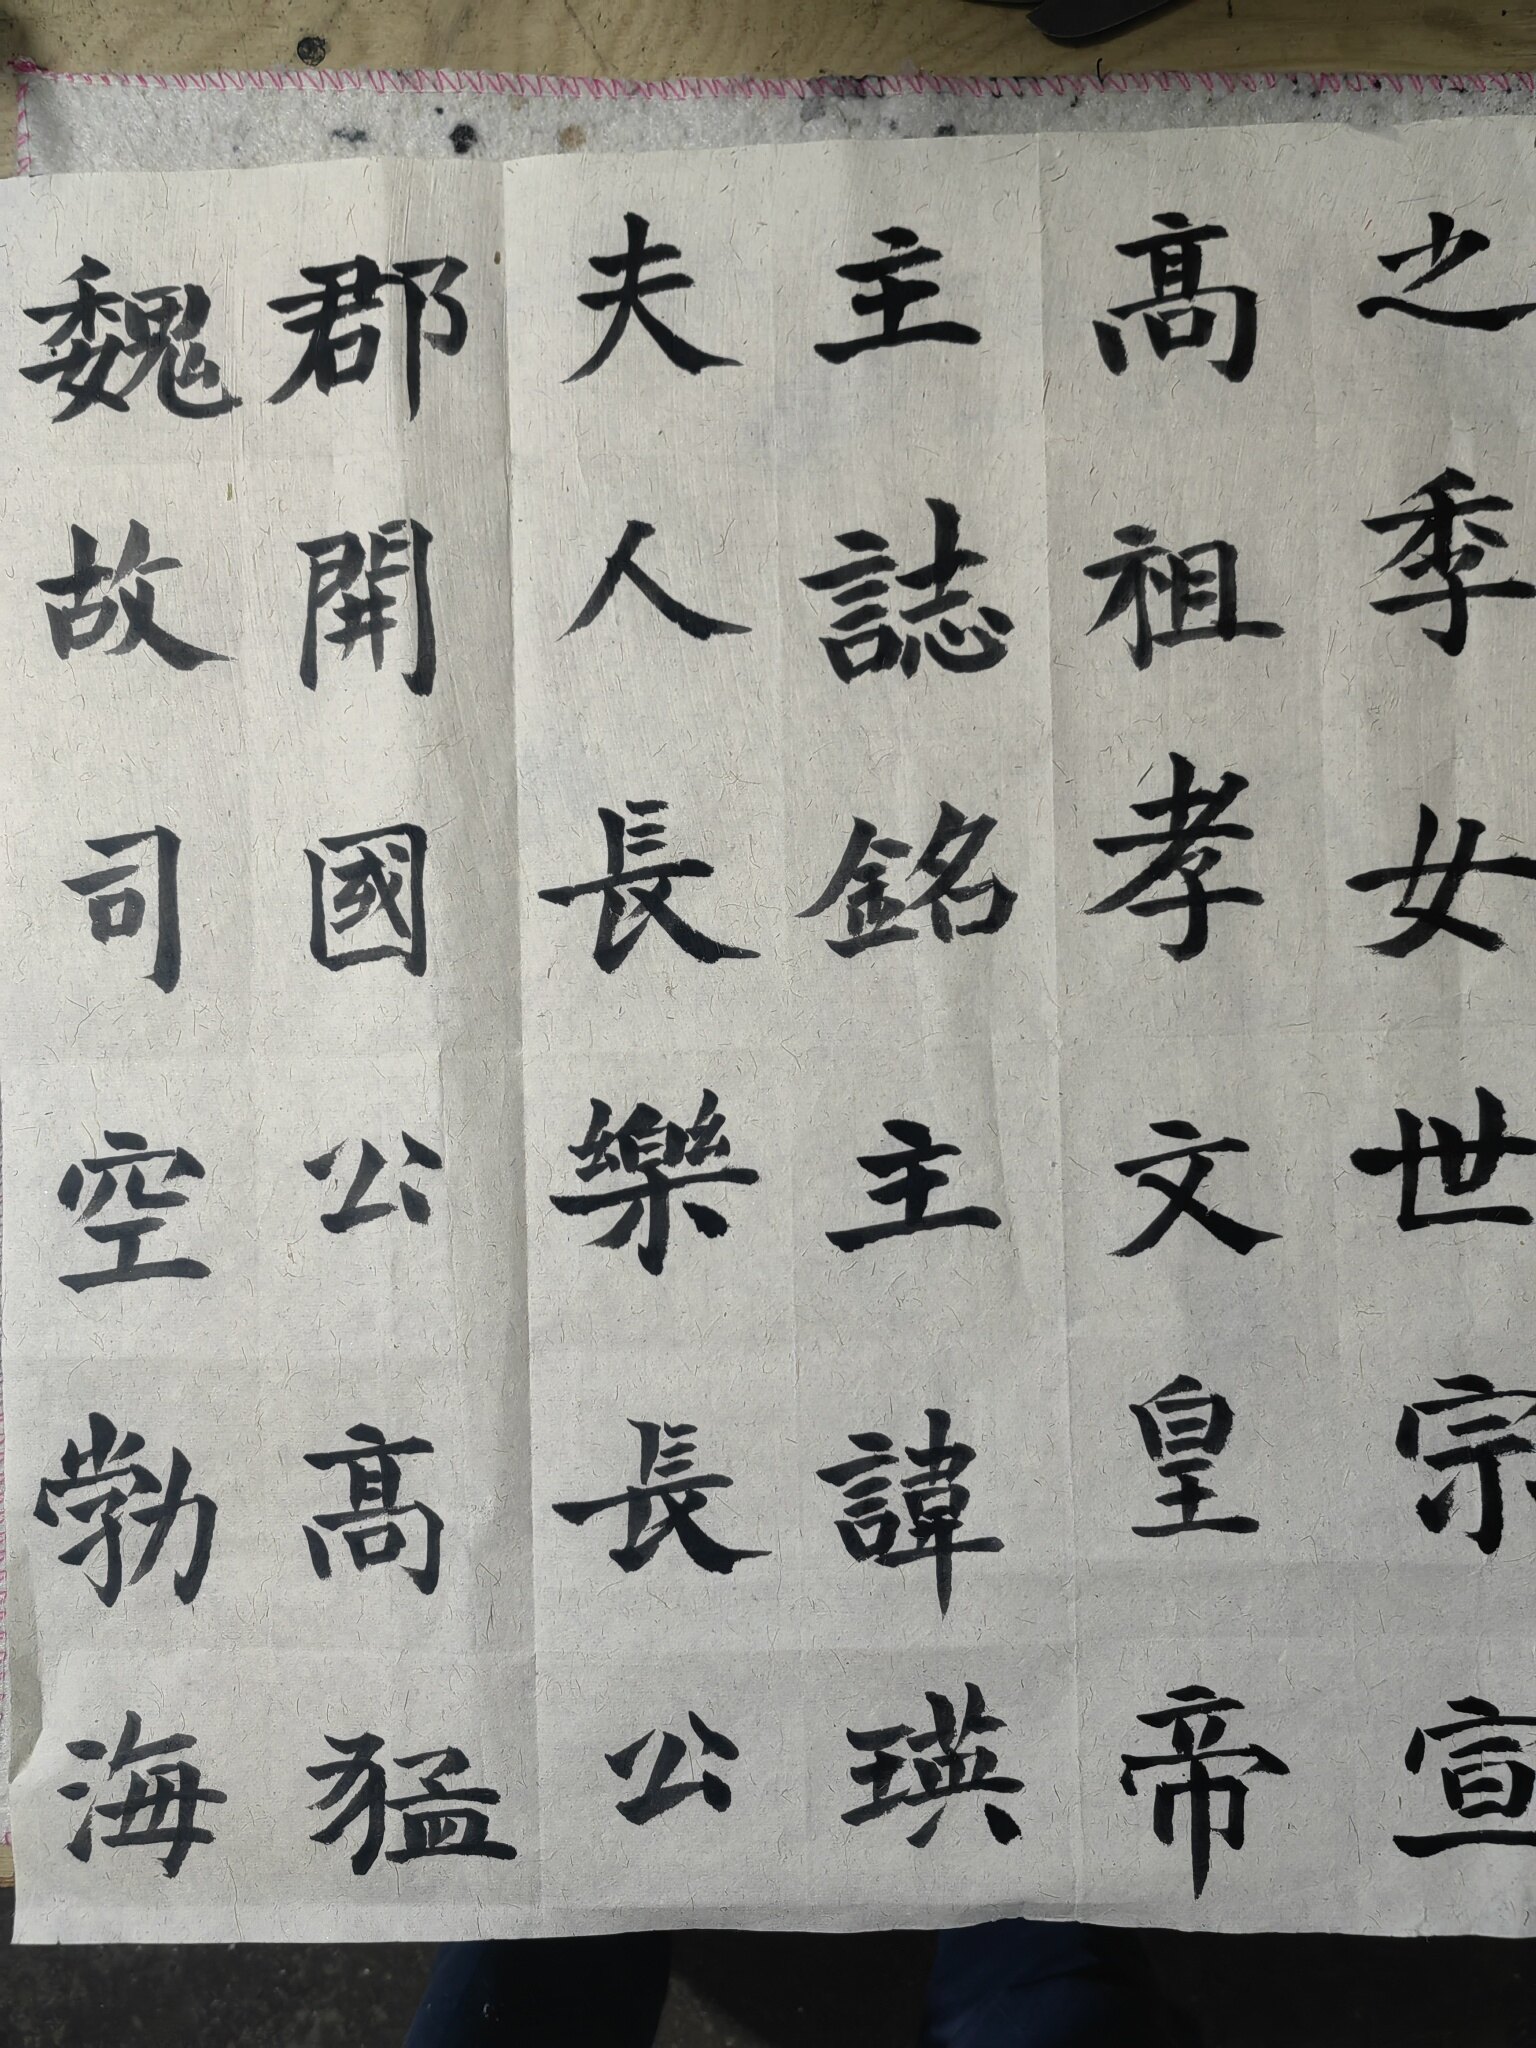 魏故司空勃海
郡開國公高猛
夫人長樂長公
主誌銘主諱瑛
高祖孝文皇帝
之季女世宗宣